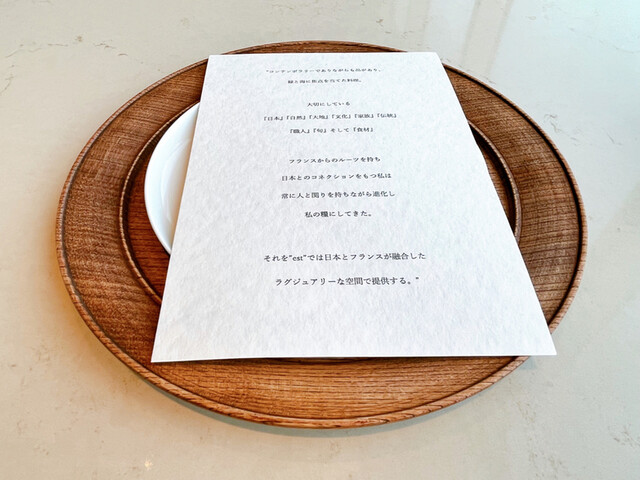 "コンテンポラリーでありながらも芯があり、
緑と海に焦点を当てた料理。
大切にしている
『日本』『自然』『大地』『文化』『家族』『伝統』
『職人』『旬』そして『食材』
フランスからのルーツを持ち
日本とのコネクションをもつ私は
常に人と関りを持ちながら進化し
私の糧にしてきた。
それを"est"では日本とフランスが融合した
ラグジュアリーな空間で提供する。"